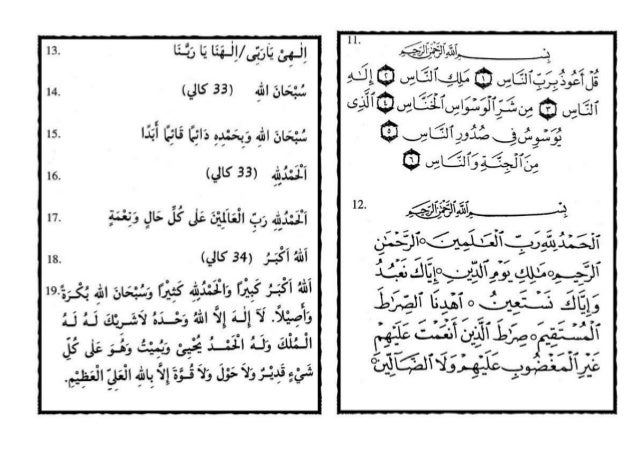 11.
بِسْمِ اللَّهِ الرَّحْمَٰنِ الرَّحِيمِ
قُلْ أَعُوذُ بِرَبِّ النَّاسِ ١ مَلِكِ النَّاسِ ٢ إِلَٰهِ
النَّاسِ ٣ مِن شَرِّ الْوَسْوَاسِ الْخَنَّاسِ ٤ الَّذِى
يُوَسْوِسُ فِى صُدُورِ النَّاسِ ٥
مِنَ الْجِنَّةِ وَالنَّاسِ ٦
12.
بِسْمِ اللَّهِ الرَّحْمَٰنِ الرَّحِيمِ
اَلْحَمْدُ لِلَّهِ رَبِّ الْعَالَمِينَ ۝ الرَّحْمَٰنِ
الرَّحِيمِ ۝ مَالِكِ يَوْمِ الدِّينِ ۝ إِيَّاكَ نَعْبُدُ
وَإِيَّاكَ نَسْتَعِينُ ۝ اهْدِنَا الصِّرَاطَ
الْمُسْتَقِيمَ ۝ صِرَاطَ الَّذِينَ أَنْعَمْتَ عَلَيْهِمْ
غَيْرِ الْمَغْضُوبِ عَلَيْهِمْ وَلَا الضَّالِّينَ ۝
13. اِلٰـهِيْ يَارَبِّى/اِلٰـهَنَا يَا رَبَّنَا
14. سُبْحَانَ اللهِ (33 كالي)
15. سُبْحَانَ اللهِ وَبِحَمْدِهِ دَائِمًا قَائِمًا أَبَدًا
16. اَلْحَمْدُلِلهِ (33 كالي)
17. اَلْحَمْدُلِلهِ رَبِّ الْعَالَمِيْنَ عَلَى كُلِّ حَالٍ وَنِعْمَةٍ
18. اَللهُ اَكْبَرُ (34 كالي)
19. اَللهُ اَكْبَرُ كَبِيْرًا وَالْحَمْدُلِلهِ كَثِيْرًا وَسُبْحَانَ اللهِ بُكْرَةً
وَأَصِيْلًا. لَا إِلَـهَ إِلَّا اللهُ وَحْدَهُ لَاشَرِيْكَ لَـهُ لَهُ
الْمُلْكُ وَلَهُ الْحَمْدُ يُحْيِىْ وَيُمِيْتُ وَهُوَ عَلَى كُلِّ
شَيْءٍ قَدِيْرٌ وَلَا حَوْلَ وَلَا قُوَّةَ إِلَّا بِاللهِ الْعَلِيِّ الْعَظِيْمِ.